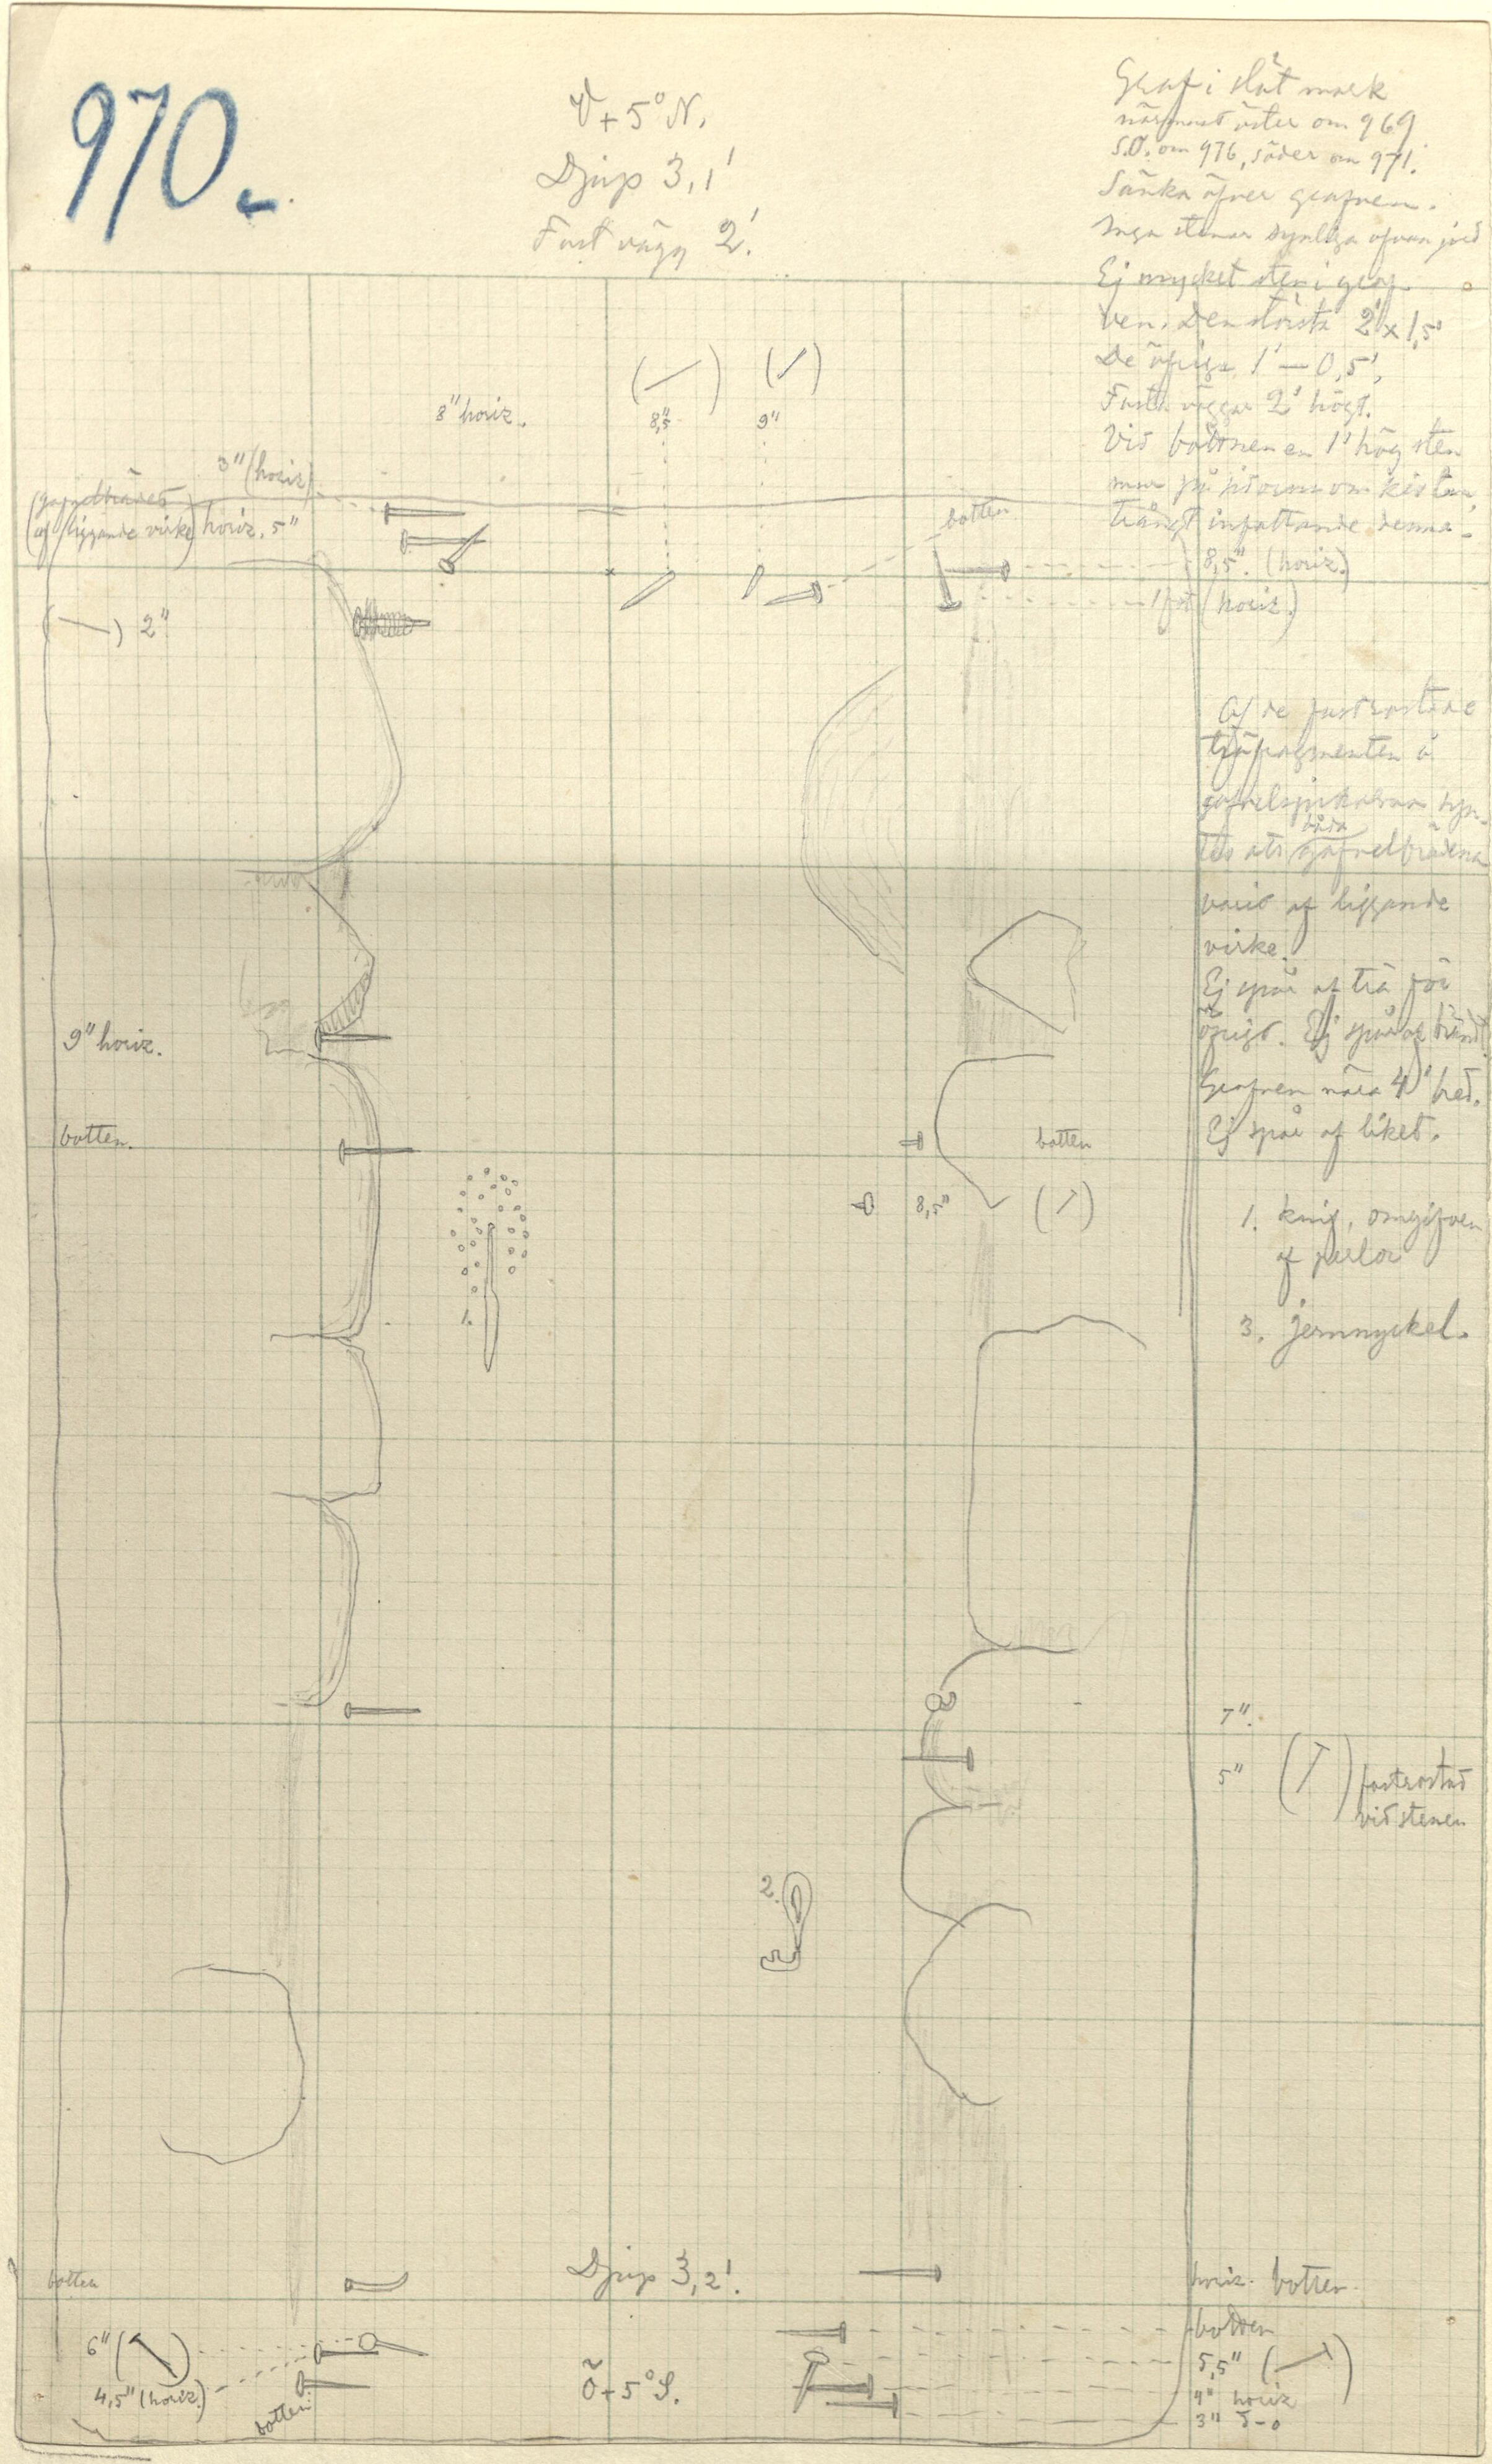 970.
V + 5° N.
Djup 3,1'
Fast vägg 2'.
Graf i slät mark
närmast öster om 969
S.O. om 976, söder om 971.
Sänka öfver grafven.
Inga stenar synliga ofvan jord
Ej mycket sten i graf
ven. Den största 2' x 1,5'
De öfriga 1' – 0,5'.
Fasta väggar 2' högt.
Vid bottnen en 1' hög sten
mur på sidorna om kistan,
trångt infattande denna.
8" horiz.
8,5"
9"
3" (horiz)
(gafvelbrädet
(af liggande virke) horiz. 5"
botten
8,5". (horiz.)
1 fot (horiz.)
2"
Af de fastrostade
träfragmenten å
gafvelspikarna syn-
tes att båda gafvelbrädena
varit af liggande
virke.
Ej spår af trä för
öfrigt. Ej spår af bränd
Grafven nära 4' bred.
Ej spår af liket.
9" horiz.
botten.
botten
8,5"
1.
1. knif, omgifven
af perlor
3. jernnyckel.
7".
5"
fastrostad
vid stenen
2.
botten
Djup 3,2'.
horiz. botten.
botten
6"
5,5"
4,5" (horiz.)
botten
Ö + 5° S.
4" horiz
3" d-o